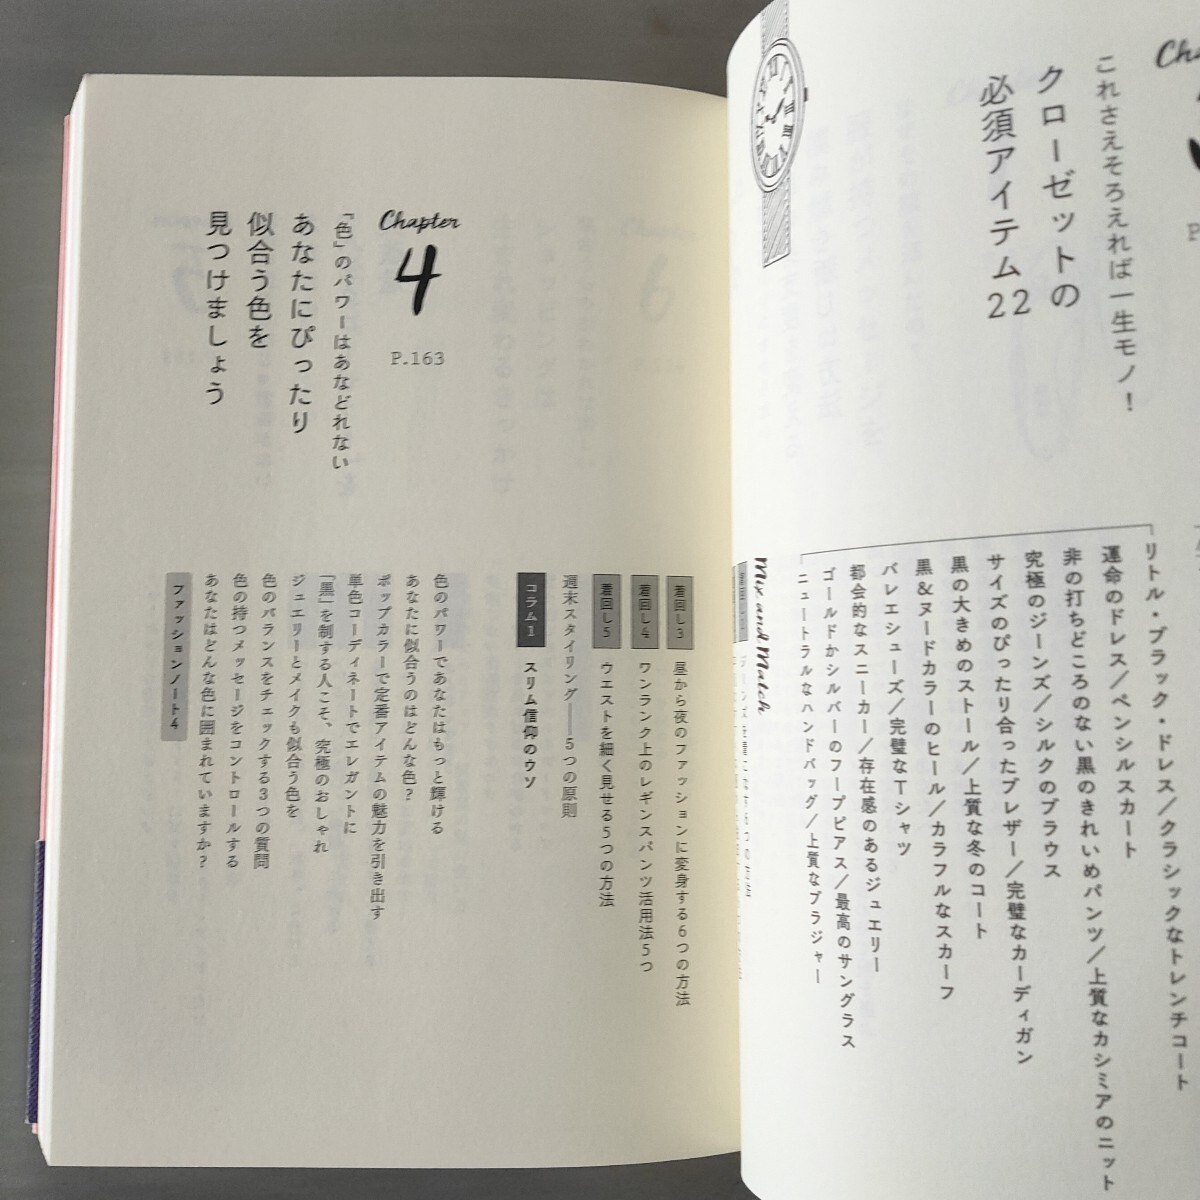 これさえそろえれば一生モノ!
クローゼットの
必須アイテム22
リトル・ブラック・ドレス/クラシックなトレンチコート
運命のドレス/ペンシルスカート
非の打ちどころのない黒のきれいめパンツ/上質なカシミアのニット
究極のジーンズ/シルクのブラウス
サイズのぴったり合ったブレザー/完璧なカーディガン
黒の大きめのストール/上質な冬のコート
黒&ヌードカラーのヒール/カラフルなスカーフ
バレエシューズ/完璧なTシャツ
都会的なスニーカー/存在感のあるジュエリー
ゴールドかシルバーのフープピアス/最高のサングラス
ニュートラルなハンドバッグ/上質なブラジャー
Mix and Match
着回し3 昼から夜のファッションに変身する6つの方法
着回し4 ワンランク上のレギンスパンツ活用法5つ
着回し5 ウエストを細く見せる5つの方法
週末スタイリング――5つの原則
コラム1 スリム信仰のウソ
Chapter
4
P.163
「色」のパワーはあなどれない
あなたにぴったり
似合う色を
見つけましょう
色のパワーであなたはもっと輝ける
あなたに似合うのはどんな色?
ポップカラーで定番アイテムの魅力を引き出す
単色コーディネートでエレガントに
「黒」を制する人こそ、究極のおしゃれ
ジュエリーとメイクも似合う色を
色のバランスをチェックする3つの質問
色の持つメッセージをコントロールする
あなたはどんな色に囲まれていますか?
ファッションノート4